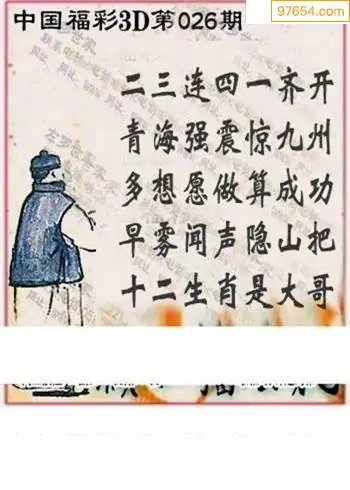 97654.com
中国福彩3D第026期
二三连四一齐开
青海强震惊九州
多想愿做算成功
早雾闻声隐山把
十二生肖是大哥